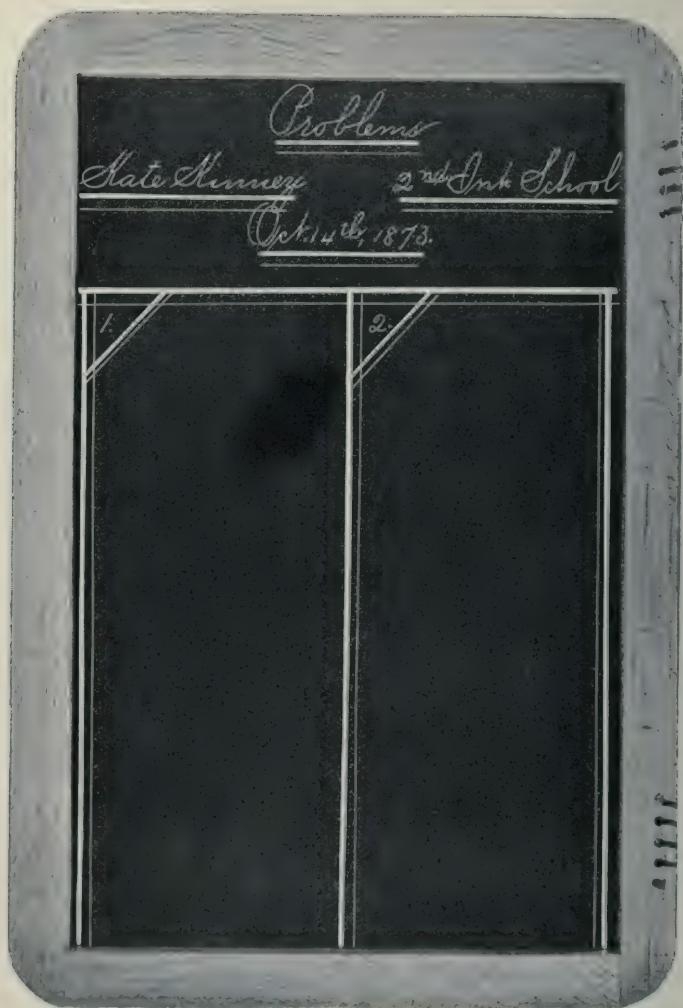 Problems
Kate Kinney 2nd Int. School.
Oct. 14th, 1873.
1. 2.